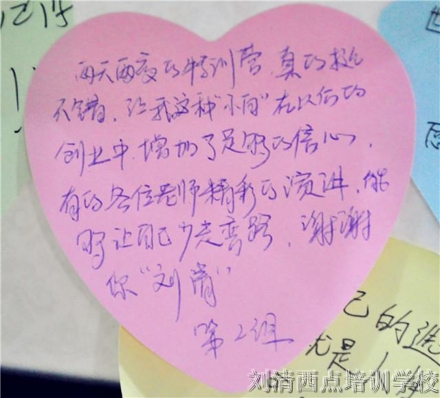 两天两夜的特训营,真的挺
不错,给我这种"小白"在以后的
创业中,增加了足够的信心,
有的各位老师精彩的演讲,能
够让自己少走弯路,谢谢
你"刘清"
第2组
己的
尤是
刘清西点培训学校